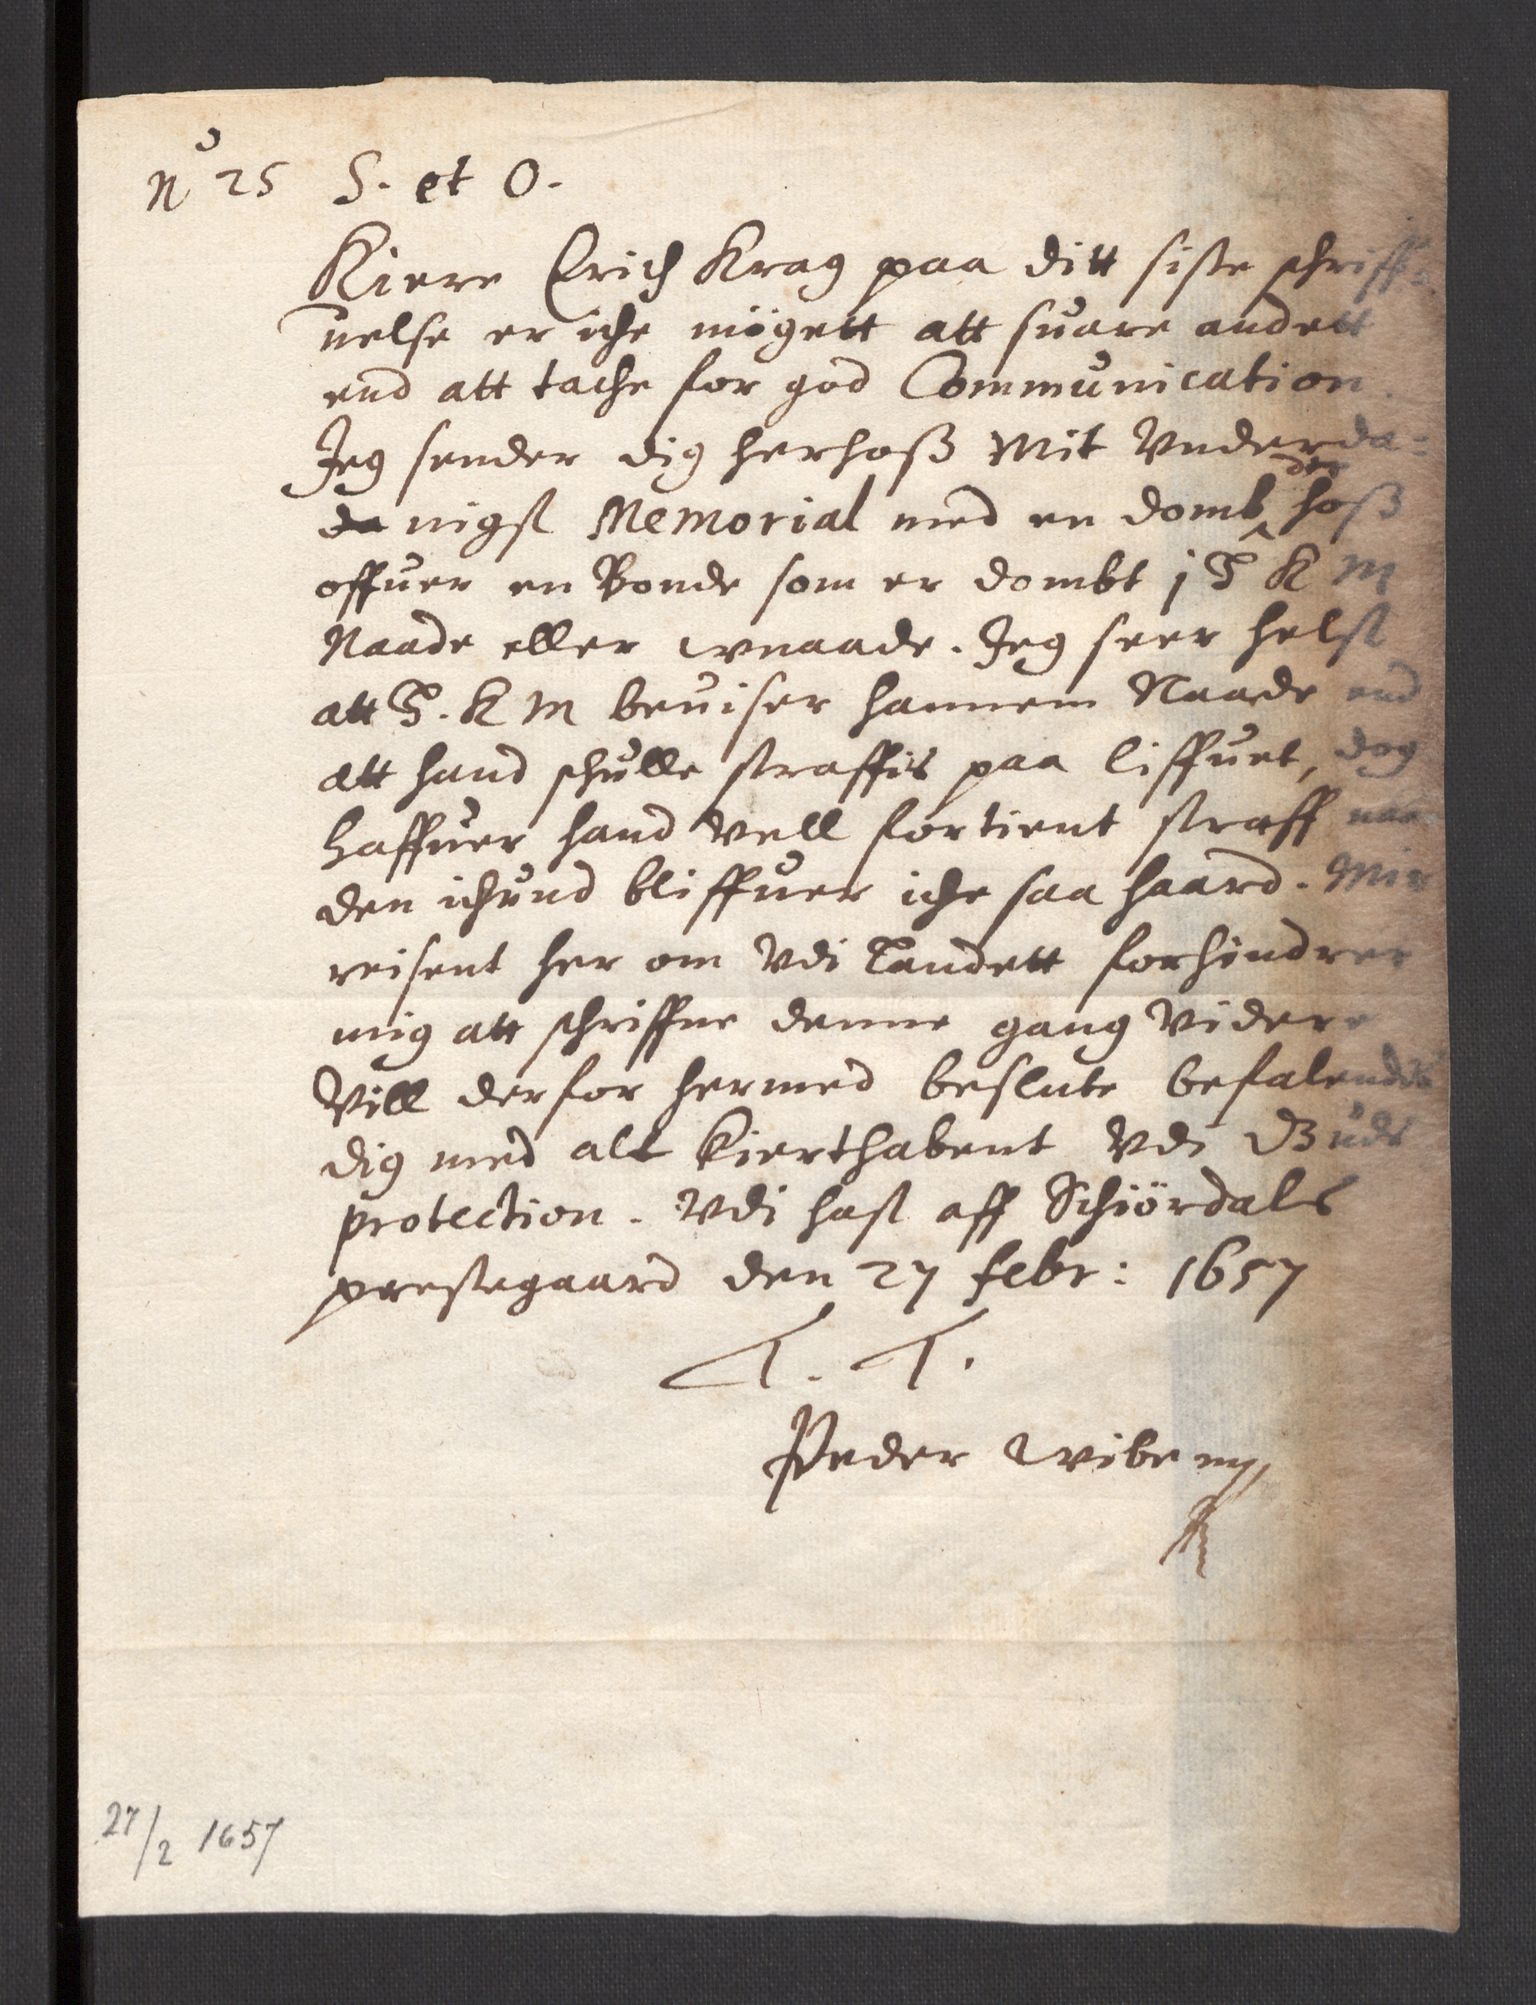 No 25 S. et O.
Kiere Erich Krag paa ditt siste schriff-
uelse er iche mögett att suare andett
end att tache for god Communication.
Jeg sender dig herhoß Mit Vnderda-
nigst Memorial med en domb der hoß
offuer en Bonde som er dombt j H K M
Naade eller wnaade. Jeg seer helst
att H. K M beuiser hannem Naade end
att hand schulle straffis paa liffuet, dog
haffuer hand Vell fortient straff naar
den ichund bliffuer iche saa haard. Min
reisent her om Vdi Landett forhindrer
mig att schriffue denne gang Videre
Vill derfor hermed beslute befalendis
dig med alt kierthabent Vdi Guds
protection. Vdi hast aff Schiördals
prestegaard den 27 febr: 1657
T. T.
Peder Wibe mp
27/2 1657